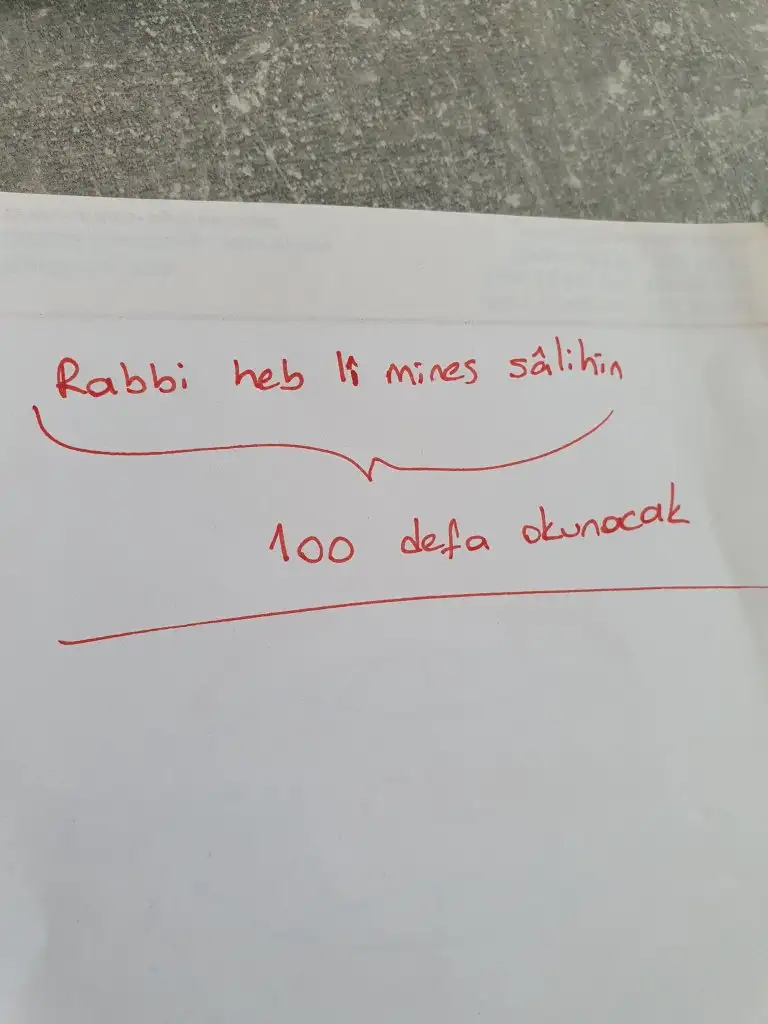 Rabbi heb lî mines sâlihîn
100 defa okunacak